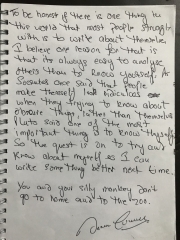 To be honest if there is one thing in
this world that most people struggle
with is to write about themselves.
I believe one reason for that is
that its always easy to analyse
others than to know yourself. As
Socrates once said that people
make themselfs look rediculous
when they trying to know about
obscure thing, rather than themselves
Pluto said one of the most
important thing is to know thyself
So the quest is on to try and
know about myself so I can
write some thing better next time.
You and your silly monkey don't
go to home and to the zoo.